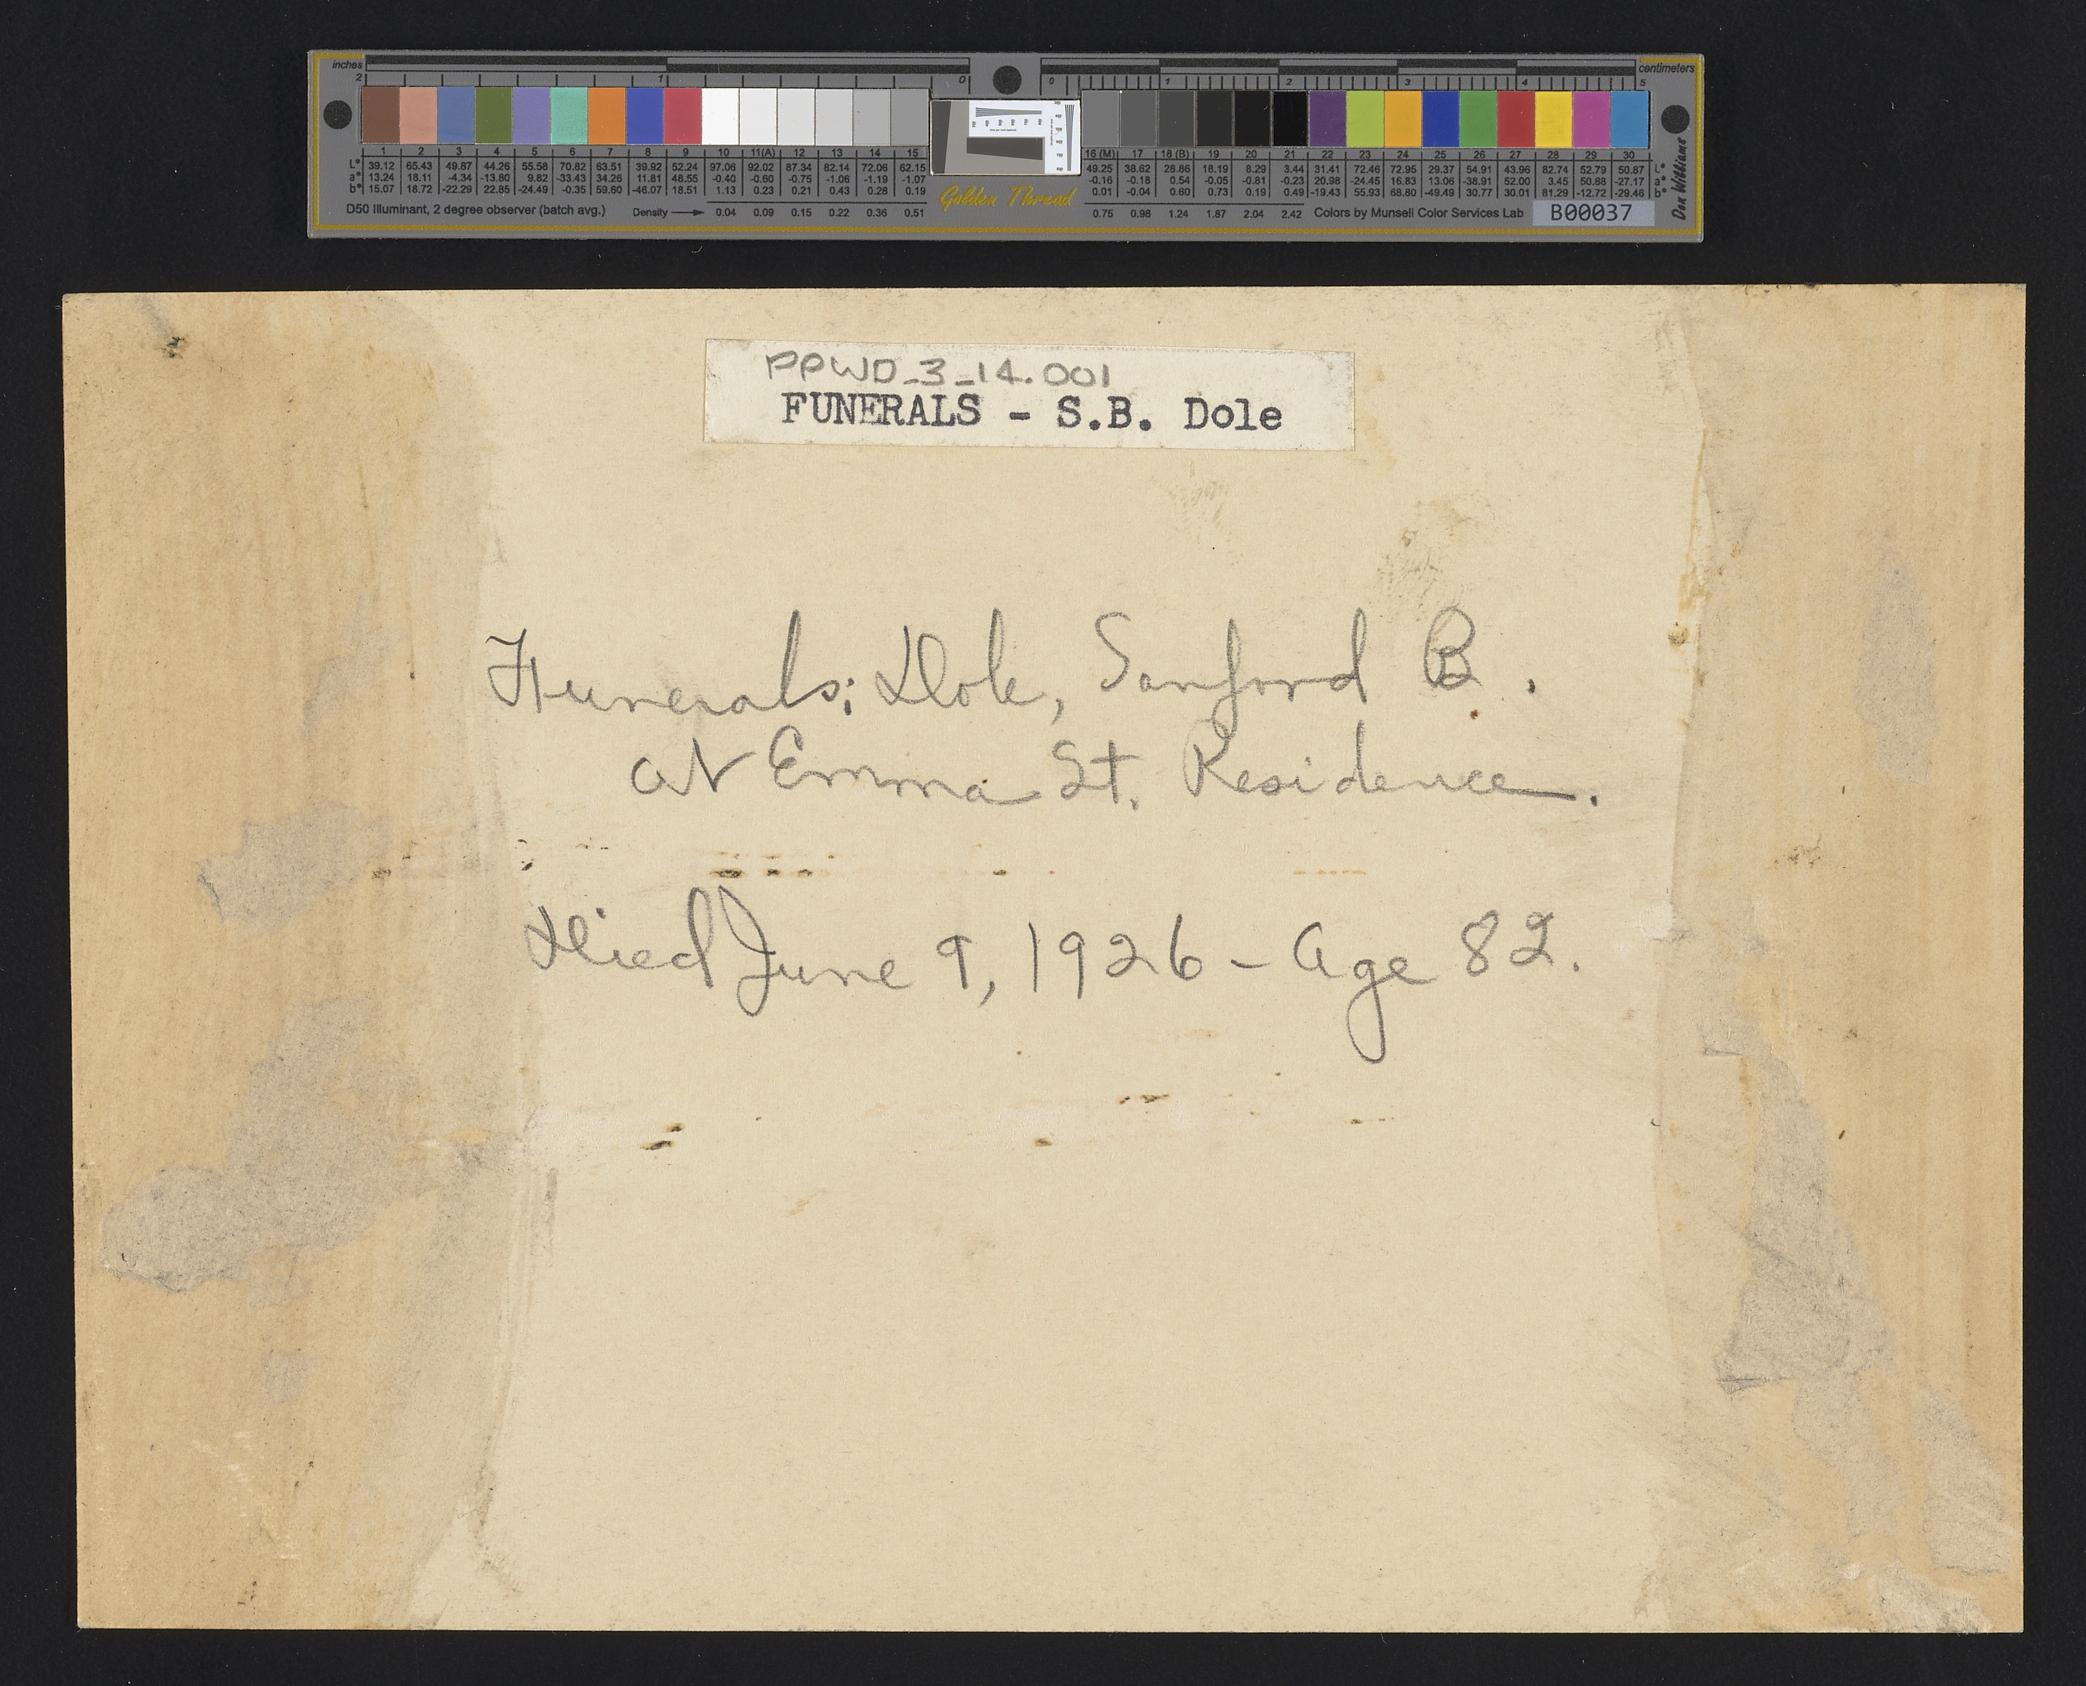 inches centimeters
2 1 0 0 1 2 3 4 5
1 2 3 4 5 6 7 8 9 10 11(A) 12 13 14 15 16 (M) 17 18 (B) 19 20 21 22 23 24 25 26 27 28 29 30
L* 39.12 65.43 49.87 44.26 55.58 70.82 63.51 39.92 52.24 97.06 92.02 87.34 82.14 72.06 62.15 49.25 38.62 28.86 18.19 8.29 3.44 31.41 72.46 72.95 29.37 54.91 43.96 82.74 52.79 50.87 L*
a* 13.24 18.11 -4.34 -13.80 9.82 -33.43 34.26 11.81 48.55 -0.40 -0.60 -0.75 -1.06 -1.19 -1.07 -0.16 -0.18 0.54 -0.05 -0.81 -0.23 20.98 -24.45 16.83 13.06 -38.91 52.00 3.45 50.88 -27.17 a*
b* 15.07 18.72 -22.29 22.85 -24.49 -0.35 59.60 -46.07 18.51 1.13 0.23 0.21 0.43 0.28 0.19 0.01 -0.04 0.60 0.73 0.19 0.49 -19.43 55.93 68.80 -49.49 30.77 30.01 81.29 -12.72 -29.46 b*
D50 Illuminant, 2 degree observer (batch avg.) Density 0.04 0.09 0.15 0.22 0.36 0.51 Golden Thread 0.75 0.98 1.24 1.87 2.04 2.42 Colors by Munsell Color Services Lab B00037
Don Williams
PPWD_3_14.001
FUNERALS - S.B. Dole
Funerals; Dole, Sanford B.
at Emma St. Residence.
Died June 9, 1926 - Age 82.